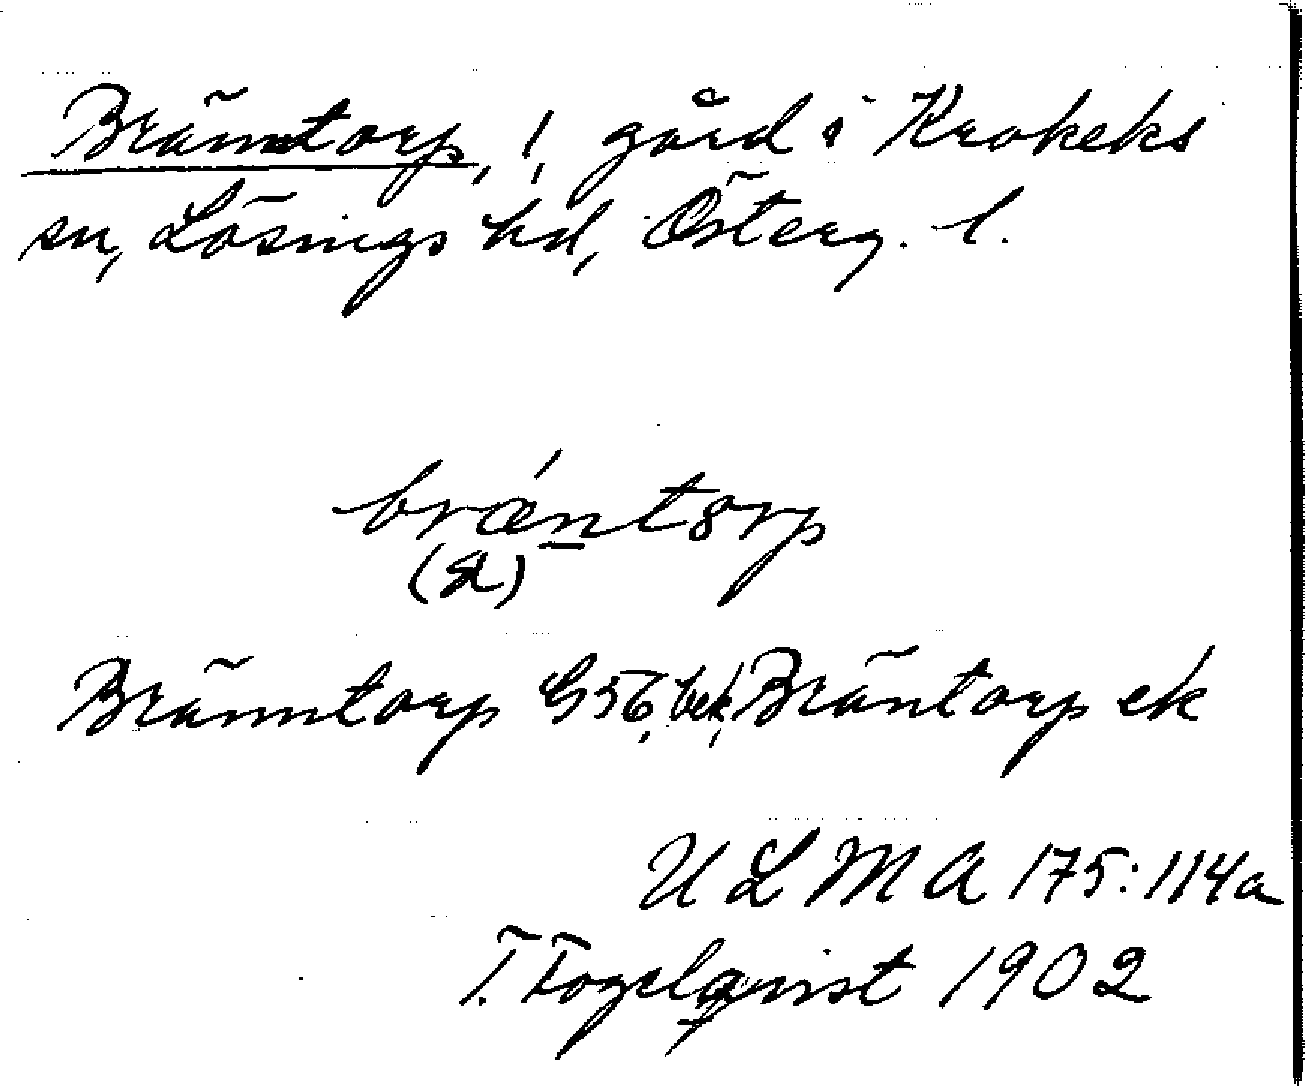 Bränntorp, 1, gård i Krokeks
sn, Lösings hd, Österg. l.
brǽn̲tørp
(st)
Bränntorp G 56, bek, Bräntorp ek
U L M A 175:114a
T. Fogelqvist 1902